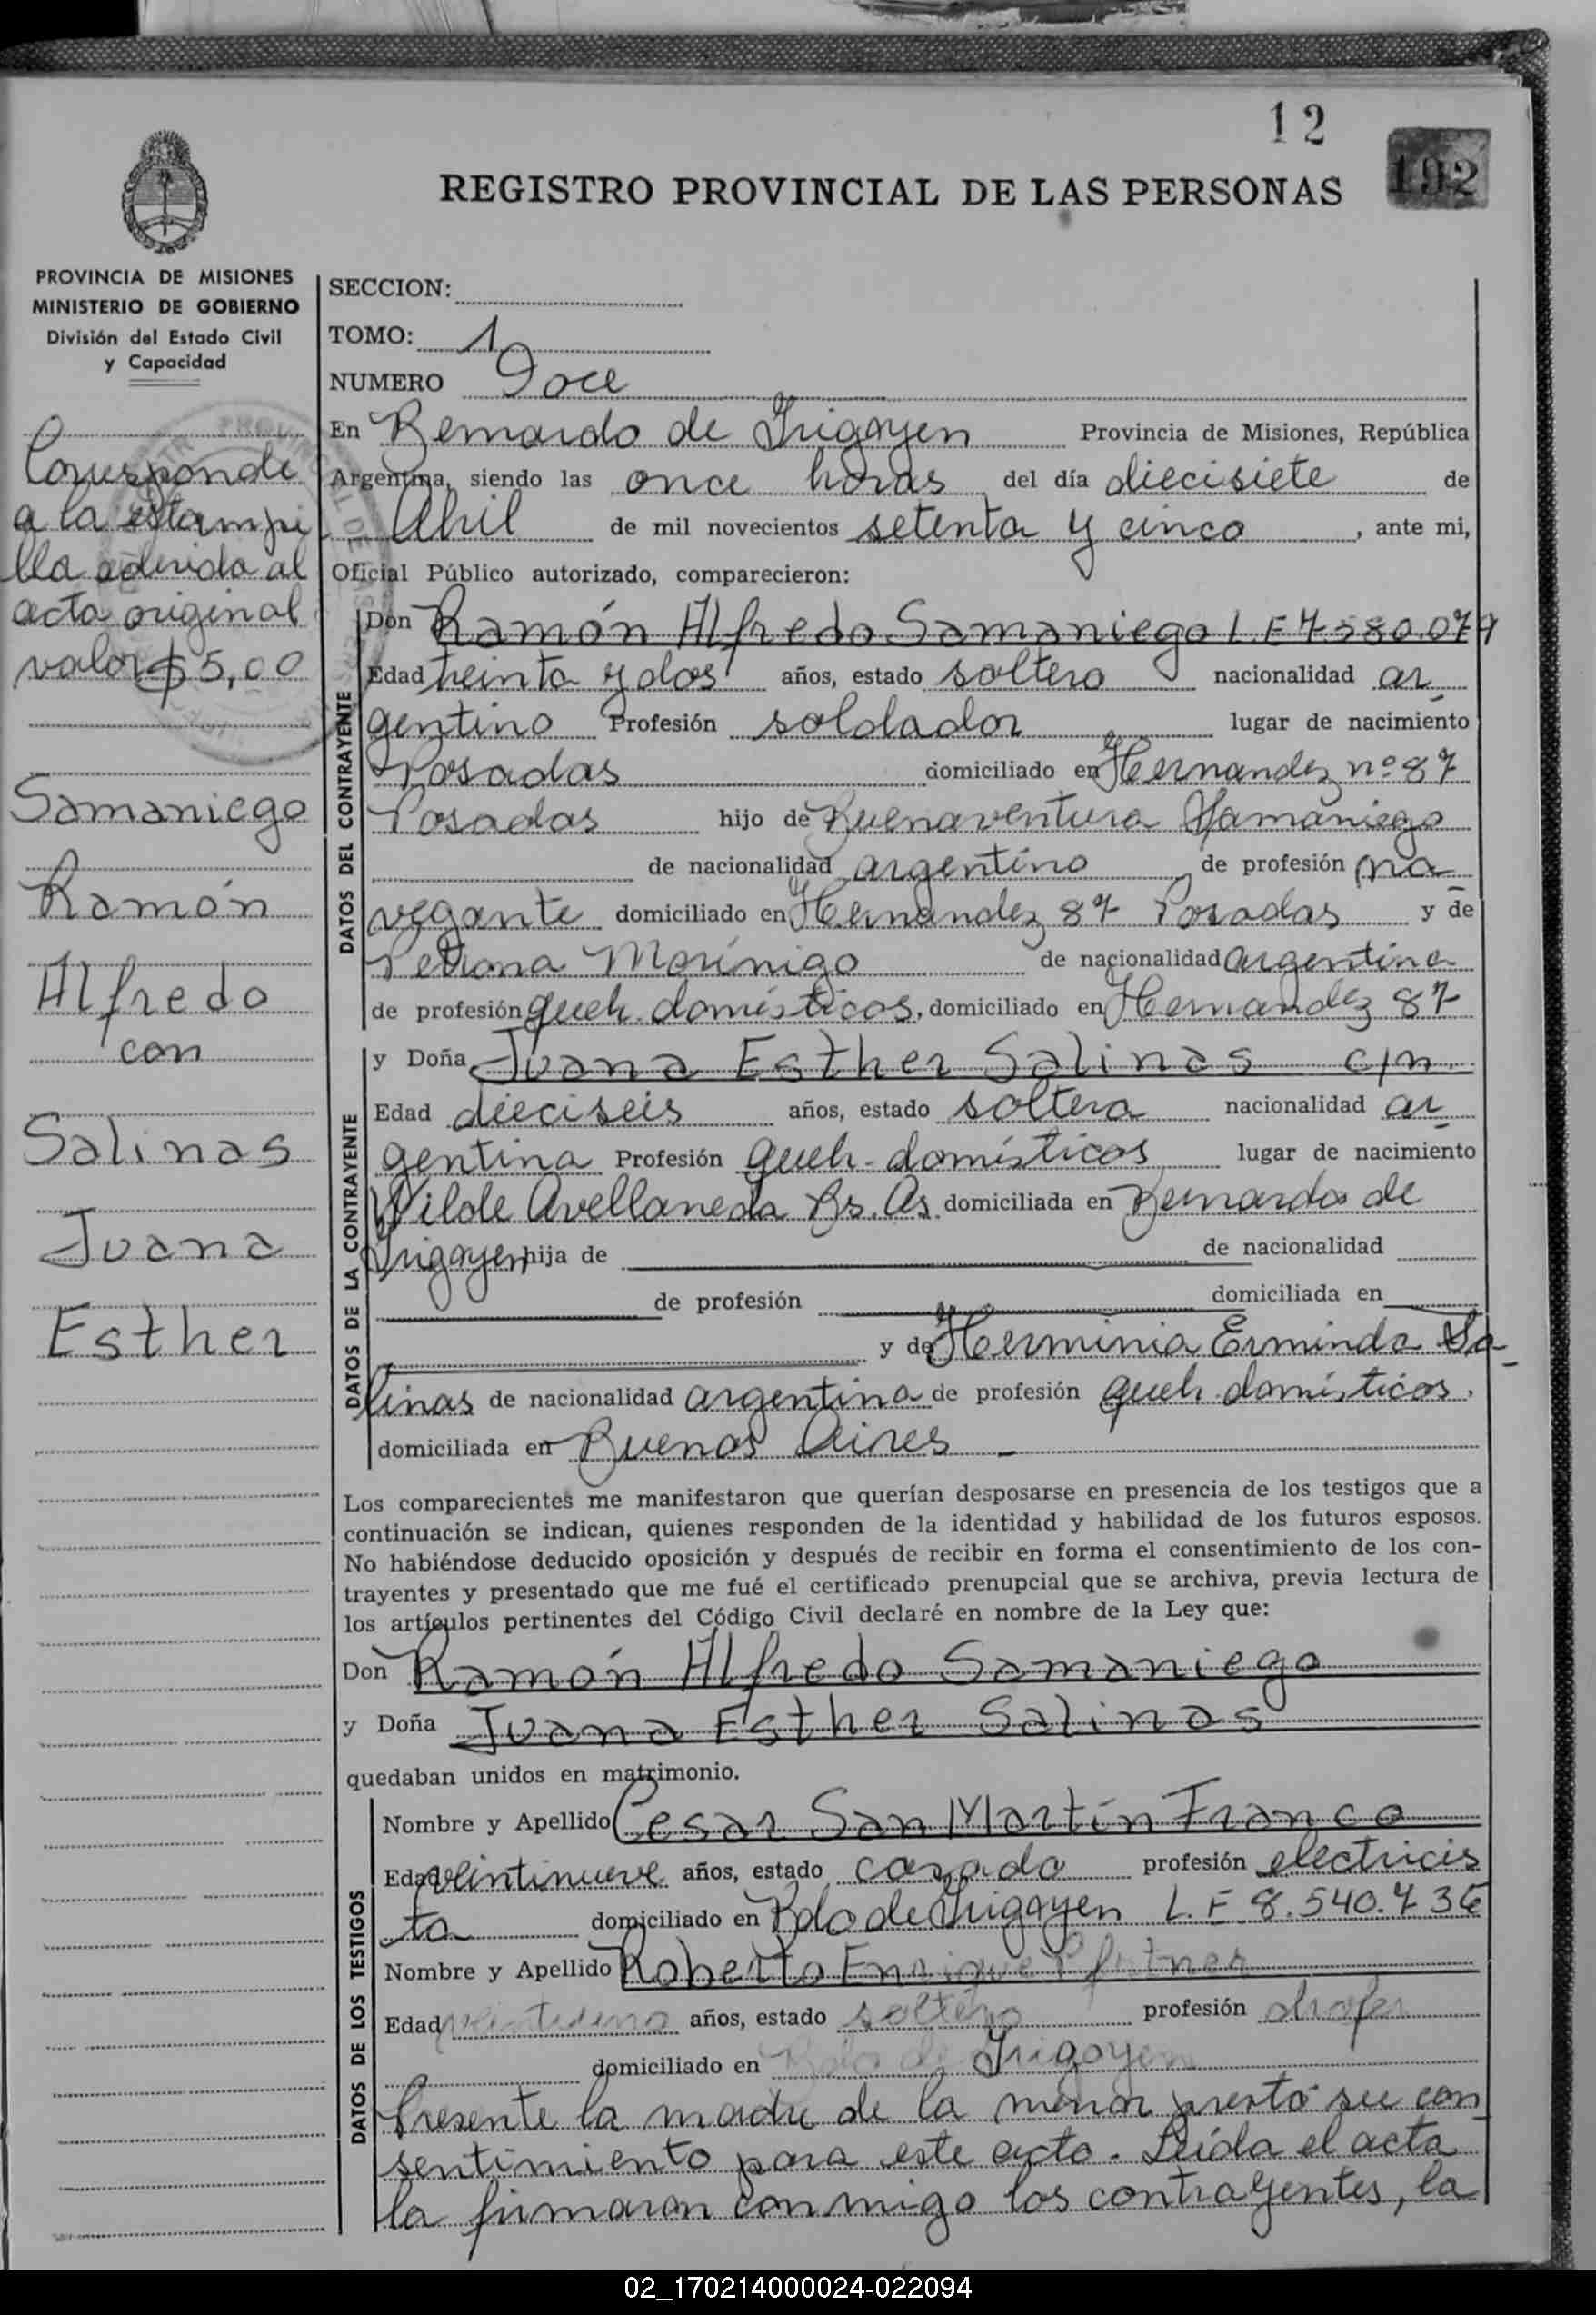 12
192
REGISTRO PROVINCIAL DE LAS PERSONAS
PROVINCIA DE MISIONES
MINISTERIO DE GOBIERNO
División del Estado Civil
y Capacidad
Corresponde
a la estampi
lla aderida al
acta original
valor $ 5,00
Samaniego
Ramón
Alfredo
con
Salinas
Juana
Esther
SECCION:
TOMO: 1
NUMERO Doce
En Bernardo de Irigoyen Provincia de Misiones, República
Argentina, siendo las once horas del día diecisiete de
Abril de mil novecientos setenta y cinco, ante mi,
Oficial Público autorizado, comparecieron:
DATOS DEL CONTRAYENTE
Don Ramón Alfredo Samaniego L.E 7580.079
Edad treinta y dos años, estado soltero nacionalidad ar
gentino Profesión soldador lugar de nacimiento
Posadas domiciliado en Hernandez nº 87
Posadas hijo de Buenaventura Samaniego
de nacionalidad argentino de profesión na
vegante domiciliado en Hernandez 87 Posadas y de
Petrona Morínigo de nacionalidad argentina
de profesión queh. domésticos, domiciliado en Hernandez 87
DATOS DE LA CONTRAYENTE
y Doña Juana Esther Salinas c/n.
Edad dieciseis años, estado soltera nacionalidad ar
gentina Profesión queh. domésticos lugar de nacimiento
Wilde Avellaneda Bs. As. domiciliada en Bernardo de
Irigoyen hija de de nacionalidad
de profesión domiciliada en
y de Herminia Erminda Sa-
linas de nacionalidad argentina de profesión queh. domésticos,
domiciliada en Buenos Aires -
Los comparecientes me manifestaron que querían desposarse en presencia de los testigos que a
continuación se indican, quienes responden de la identidad y habilidad de los futuros esposos.
No habiéndose deducido oposición y después de recibir en forma el consentimiento de los con-
trayentes y presentado que me fué el certificado prenupcial que se archiva, previa lectura de
los artículos pertinentes del Código Civil declaré en nombre de la Ley que:
Don Ramón Alfredo Samaniego
y Doña Juana Esther Salinas
quedaban unidos en matrimonio.
DATOS DE LOS TESTIGOS
Nombre y Apellido Cesar San Martín Franco
Edad veintinueve años, estado casado profesión electricis
ta domiciliado en Bdo de Irigoyen L.E 8.540.736
Nombre y Apellido Roberto Enrique
Edad años, estado soltero profesión chofer
domiciliado en Bdo de Irigoyen
Presente la madre de la menor prestó su con
sentimiento para este acto. Leída el acta
la firmaron conmigo los contrayentes, la
02_170214000024-022094